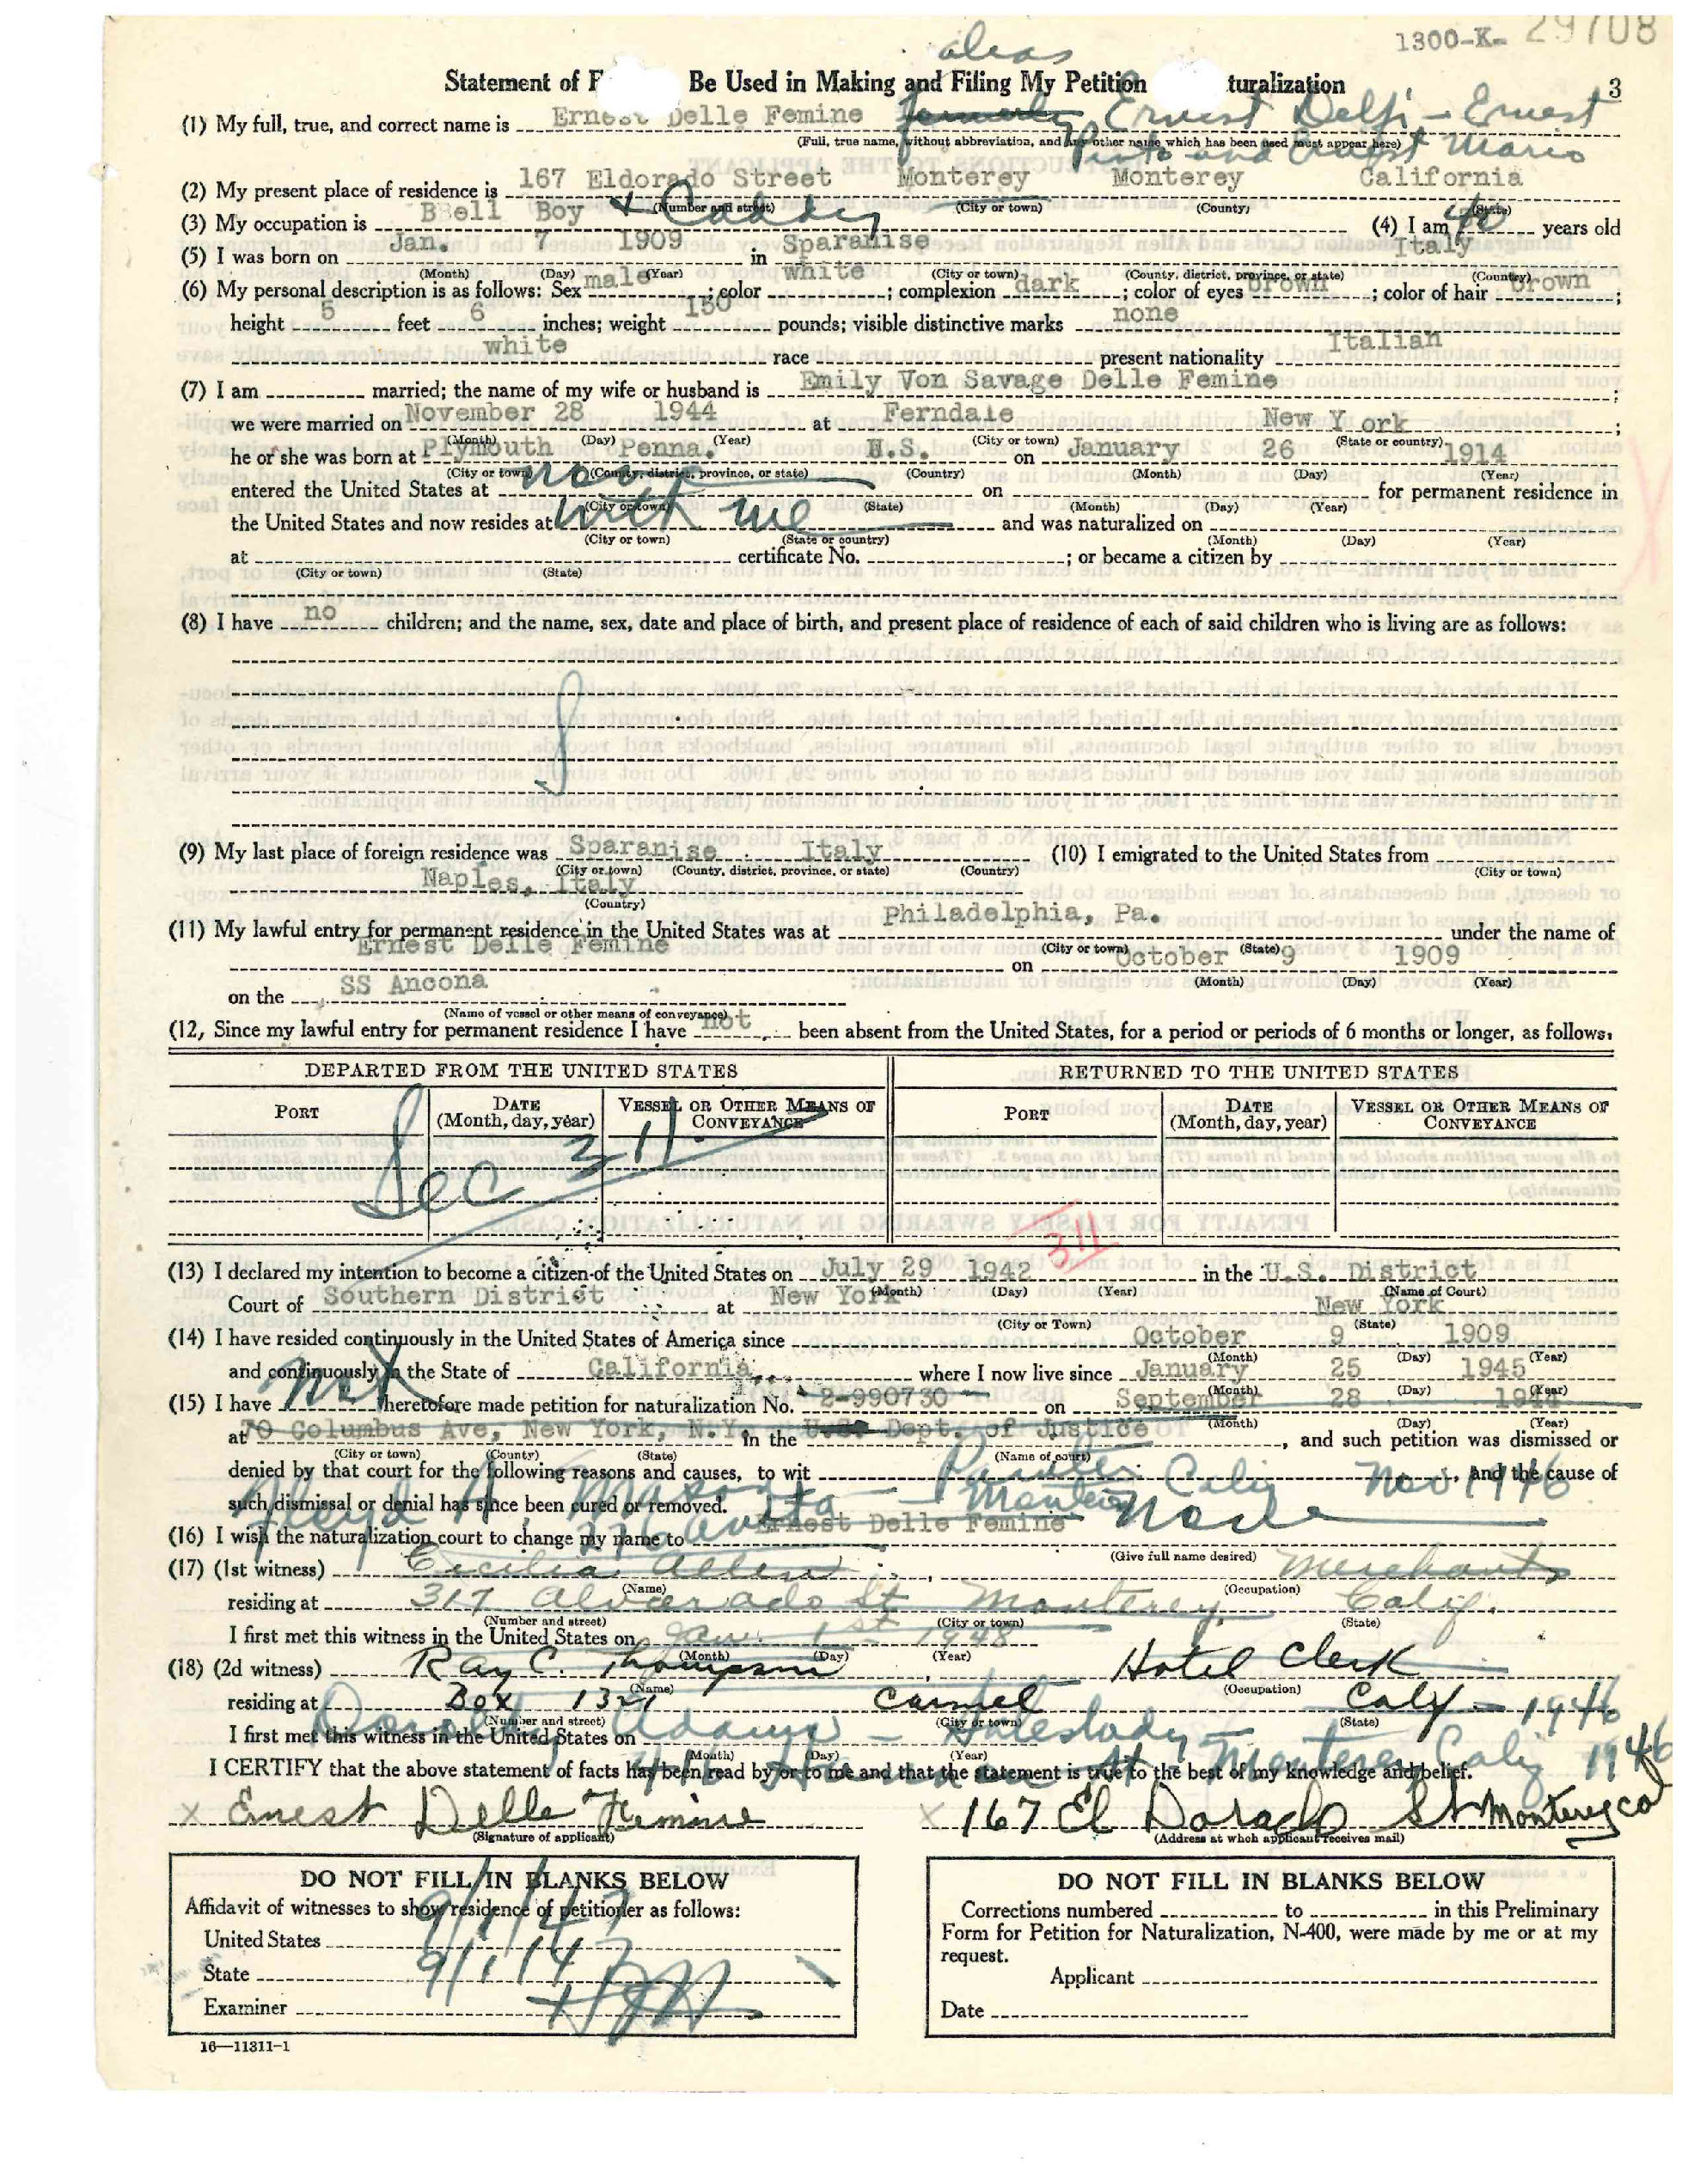 1300-K- 29708
alias
Statement of F Be Used in Making and Filing My Petition turalization 3
(1) My full, true, and correct name is Ernest Delle Femine formerly Ernest Delfi - Ernest
(Full, true name, without abbreviation, and any other name which has been used must appear here)
Pinto and Mario
(2) My present place of residence is 167 Eldorado Street Monterey Monterey California
(Number and street) (City or town) (County) (State)
(3) My occupation is Bell Boy & Caddy (4) I am 40 years old
(5) I was born on Jan. 7 1909 in Sparanise Italy
(Month) (Day) (Year) (City or town) (County, district, province, or state) (Country)
(6) My personal description is as follows: Sex male; color white; complexion dark; color of eyes brown; color of hair brown;
height 5 feet 6 inches; weight 150 pounds; visible distinctive marks none
white race present nationality Italian
(7) I am married; the name of my wife or husband is Emily Von Savage Delle Femine;
we were married on November 28 1944 at Ferndale New Y ork;
(Month) (Day) (Year) (City or town) (State or country)
he or she was born at Plymouth Penna. U.S. on January 26 1914
(City or town) (County, district, province, or state) (Country) (Month) (Day) (Year)
entered the United States at on for permanent residence in
(City or town) (State) (Month) (Day) (Year)
the United States and now resides at with me and was naturalized on
(City or town) (State or country) (Month) (Day) (Year)
at certificate No. ; or became a citizen by
(City or town) (State)
(8) I have no children; and the name, sex, date and place of birth, and present place of residence of each of said children who is living are as follows:
(9) My last place of foreign residence was Sparanise Italy (10) I emigrated to the United States from
(City or town) (County, district, province, or state) (Country) (City or town)
Naples, Italy
(Country)
(11) My lawful entry for permanent residence in the United States was at Philadelphia, Pa. under the name of
(City or town) (State)
Ernest Delle Femine on October 9 1909
(Month) (Day) (Year)
on the SS Ancona
(Name of vessel or other means of conveyance)
(12, Since my lawful entry for permanent residence I have not been absent from the United States, for a period or periods of 6 months or longer, as follows.
DEPARTED FROM THE UNITED STATES RETURNED TO THE UNITED STATES
PORT DATE (Month, day, year) VESSEL OR OTHER MEANS OF CONVEYANCE PORT DATE (Month, day, year) VESSEL OR OTHER MEANS OF CONVEYANCE
Sec 311
311
(13) I declared my intention to become a citizen of the United States on July 29 1942 in the U.S. District
(Month) (Day) (Year) (Name of Court)
Court of Southern District at New York New York
(City or Town) (State)
(14) I have resided continuously in the United States of America since October 9 1909
(Month) (Day) (Year)
and continuously in the State of California where I now live since January 25 1945
(Month) (Day) (Year)
(15) I have not heretofore made petition for naturalization No. 2-990730 on September 28 1944
(Month) (Day) (Year)
at 70 Columbus Ave, New York, N.Y. in the U.S. Dept. of Justice, and such petition was dismissed or
(City or town) (County) (State) (Name of court)
denied by that court for the following reasons and causes, to wit , and the cause of
Floyd A. Mason - Painter Calif Nov 1946
such dismissal or denial has since been cured or removed.
Monterey
(16) I wish the naturalization court to change my name to Ernest Delle Femine None
(Give full name desired)
(17) (1st witness) Cecilia Allen Merchant
(Name) (Occupation)
residing at 317 Alvarado St Monterey Calif.
(Number and street) (City or town) (State)
I first met this witness in the United States on Jan. 1st 1948
(Month) (Day) (Year)
(18) (2d witness) Ray C. Thompson Hotel Clerk
(Name) (Occupation)
residing at Box 1321 Carmel Calif - 1946
(Number and street) (City or town) (State)
I first met this witness in the United States on
Adams - Saleslady -
(Month) (Day) (Year)
416 St Monterey Calif 1946
I CERTIFY that the above statement of facts has been read by or to me and that the statement is true to the best of my knowledge and belief.
x Ernest Delle Femine x 167 El Dorado St Monterey Cal
(Signature of applicant) (Address at whch applicant receives mail)
DO NOT FILL IN BLANKS BELOW
Affidavit of witnesses to show residence of petitioner as follows:
United States 9/1/47
State 9/1/47
Examiner
DO NOT FILL IN BLANKS BELOW
Corrections numbered to in this Preliminary
Form for Petition for Naturalization, N-400, were made by me or at my
request.
Applicant
Date
16—11311-1